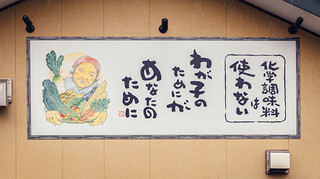 化学調味料
は
使わない
わが子の
ためにが
あなたの
ために